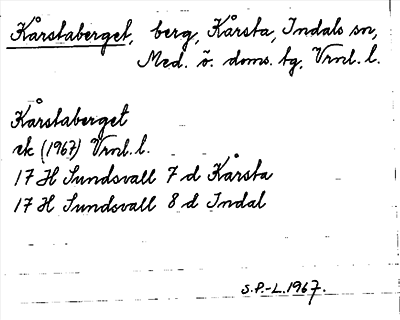 Kårstaberget, berg, Kårsta, Indals sn,
Med. ö. doms. tg, Vrnl. l.
Kårstaberget
ek (1967) Vrnl. l.
17 H Sundsvall 7 d Kårsta
17 H Sundsvall 8 d Indal
S.P.-L. 1967.